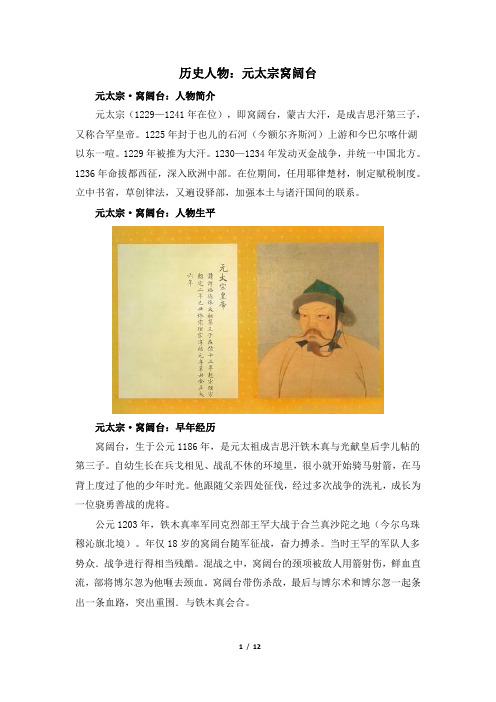 历史人物：元太宗窝阔台
元太宗·窝阔台：人物简介
元太宗（1229—1241年在位），即窝阔台，蒙古大汗，是成吉思汗第三子，
又称合罕皇帝。1225年封于也儿的石河（今额尔齐斯河）上游和今巴尔喀什湖
以东一喧。1229年被推为大汗。1230—1234年发动灭金战争，并统一中国北方。
1236年命拔都西征，深入欧洲中部。在位期间，任用耶律楚材，制定赋税制度。
立中书省，草创律法，又遍设驿部，加强本土与诸汗国间的联系。
元太宗·窝阔台：人物生平
元太宗皇帝
六年
元太宗·窝阔台：早年经历
窝阔台，生于公元1186年，是元太祖成吉思汗铁木真与光献皇后孛儿帖的
第三子。自幼生长在兵戈相见、战乱不休的环境里，很小就开始骑马射箭，在马
背上度过了他的少年时光。他跟随父亲四处征伐，经过多次战争的洗礼，成长为
一位骁勇善战的虎将。
公元1203年，铁木真率军同克烈部王罕大战于合兰真沙陀之地（今尔乌珠
穆沁旗北境）。年仅18岁的窝阔台随军征战，奋力搏杀。当时王罕的军队人多
势众．战争进行得相当残酷。混战之中，窝阔台的颈项被敌人用箭射伤，鲜血直
流，部将博尔忽为他咂去颈血。窝阔台带伤杀敌，最后与博尔术和博尔忽一起条
出一条血路，突出重围．与铁木真会合。
1 / 12